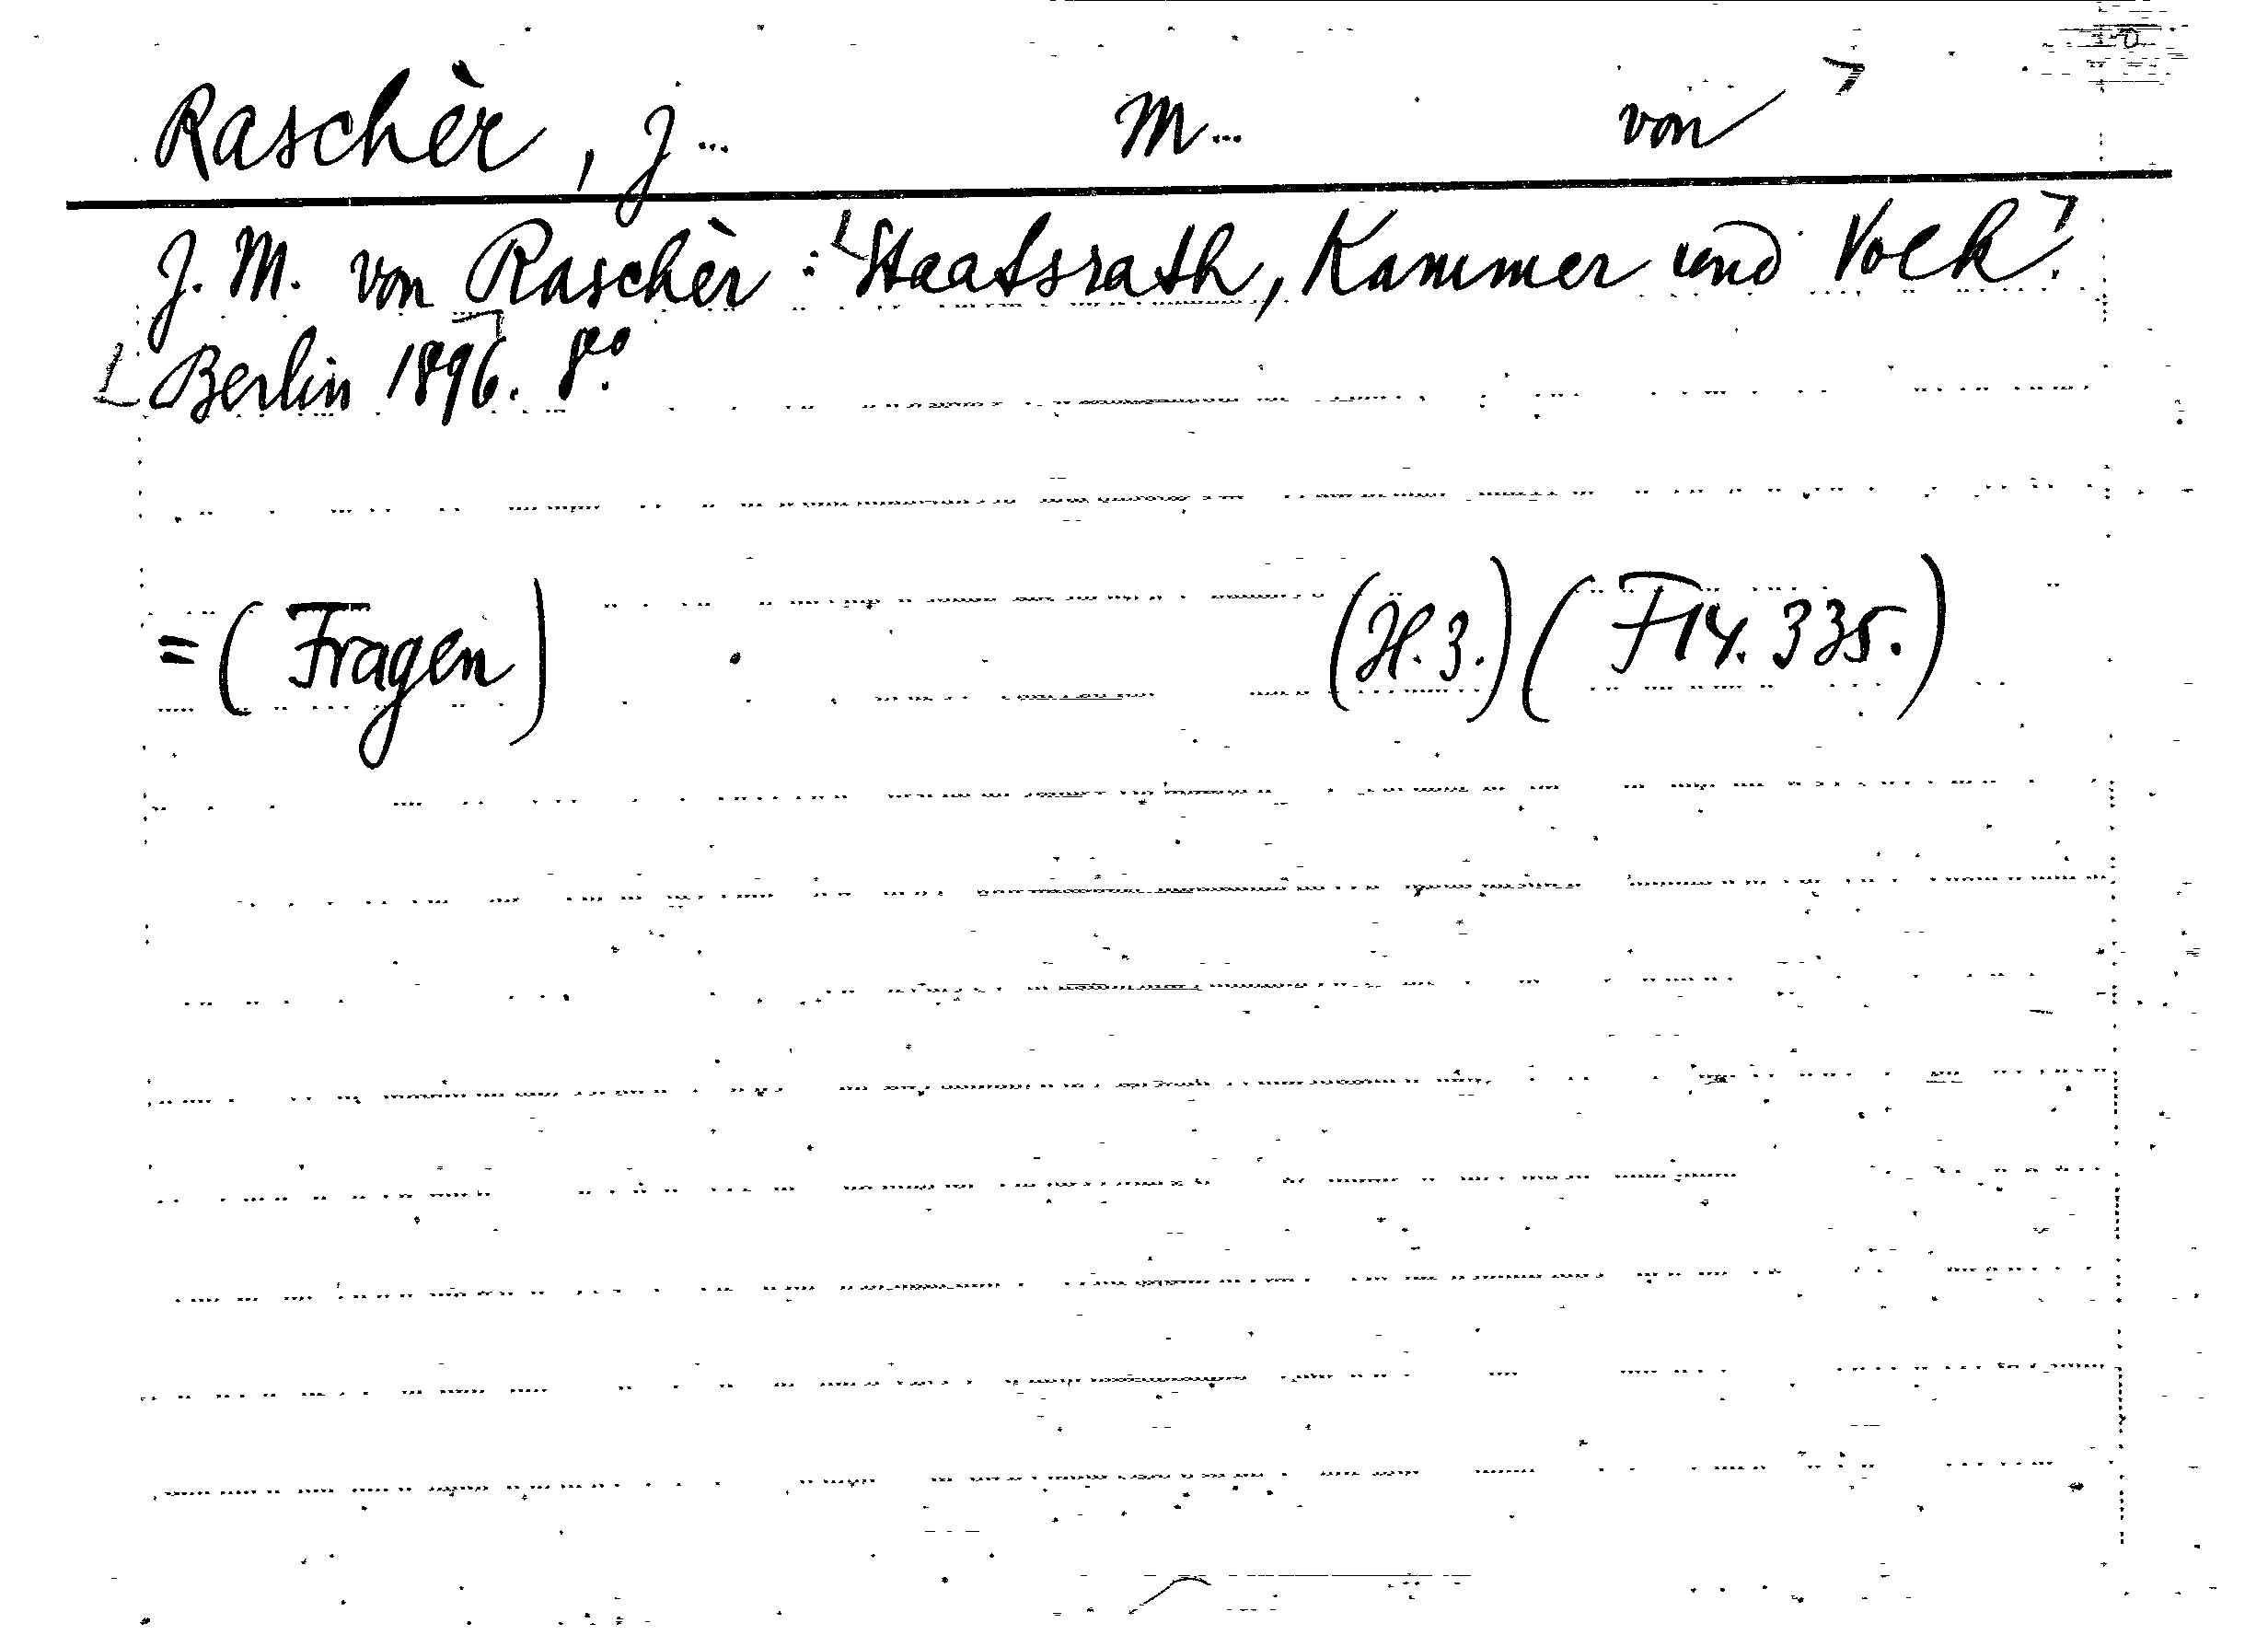 Raschèr, J... M... von
J. M. von Raschèr: Staatsrath, Kammer und Volk.
Berlin 1896. 8º.
=(Fragen) (H.3.)(F14.335.)